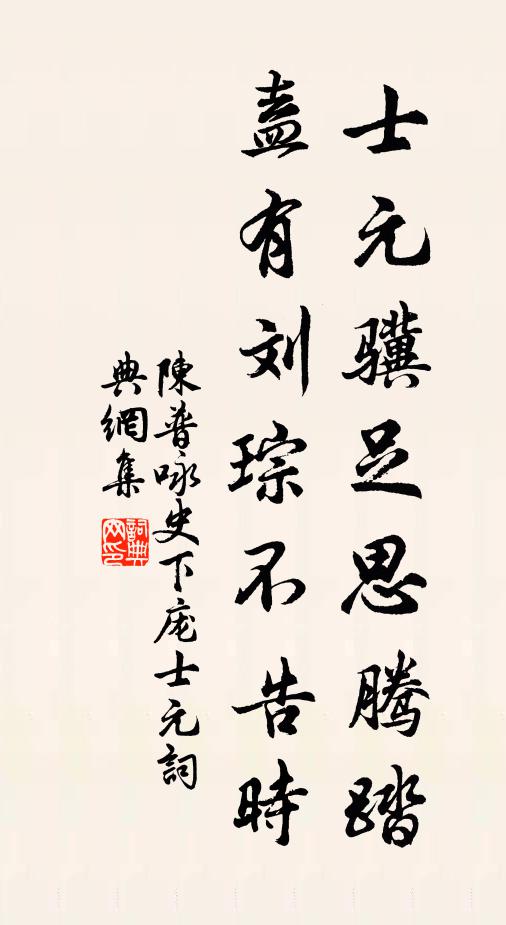 士元骥足思腾踏
盍有刘琮不告時
陳普咏史下庞士元詞
典網集
詞典網印